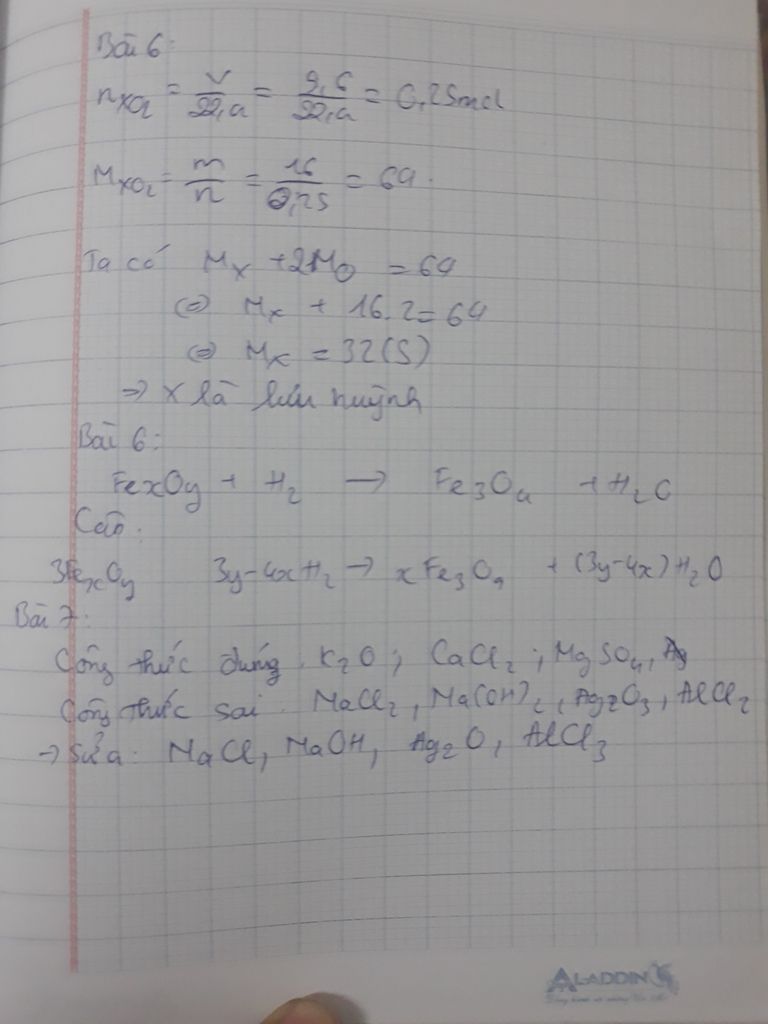 Bài 6:
nXO2 = V/22,4 = 5,6/22,4 = 0,25mol
MXO2 = m/n = 16/0,25 = 64.
Ta có MX + 2MO = 64
(=) MX + 16.2 = 64
(=) MX = 32 (S)
=> X là lưu huỳnh
Bài 6:
FexOy + H2 → Fe3O4 + H2O
Cân:
3FexOy 3y-4xH2 → xFe3O4 + (3y-4x)H2O
Bài 7:
Công thức đúng: K2O; CaCl2; MgSO4, Ag
Công thức sai: NaCl2, Na(OH)2, Ag2O3, AlCl2
→ Sửa: NaCl, NaOH, Ag2O, AlCl3
ALADDIN